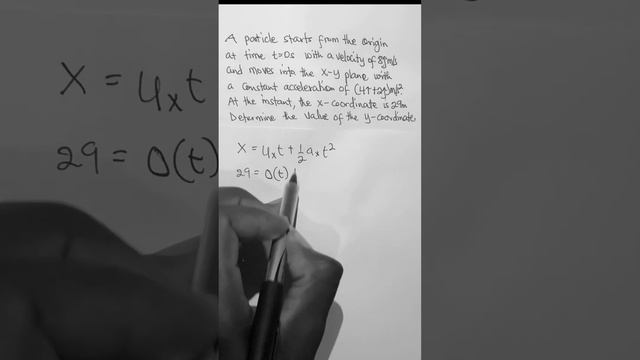 A particle starts from the origin
at time t=0s with a velocity of 8ĵm/s
and moves into the x-y plane with
a constant acceleration of (4î+2ĵ)m/s².
At the instant, the x-coordinate is 29m
Determine the value of the y-coordinate
X = uₓt + ½aₓt²
29 = 0(t)
X = uₓt
29 = 0(t)